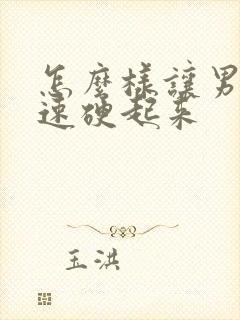 怎麼樣讓男
速硬起来
玉洪